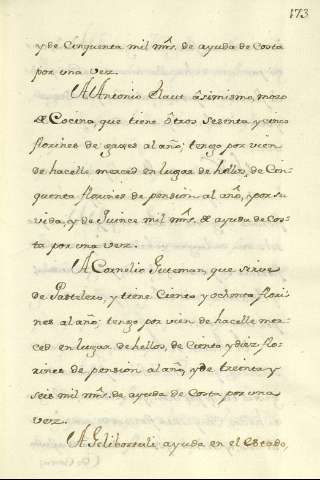 173
y de Cinquenta mil mrs. de ayuda de Costa
por una vez.
A Antonio asimismo, mozo
de Cocina que tiene otros sesenta y cinco
florines de gages al año; tengo por vien
de hacelle merced en lugar de hellos, de Cin-
quenta florines de pension al año, por su
vida, y de Quince mil mrs. de ayuda de Cos-
ta por una vez.
A Cornelio Guteman, que sirve
de Pastelero, y tiene Ciento y ochenta flori-
nes al año; tengo por vien de hacelle mer-
ced en lugar de hellos, de Ciento y diez flo-
rines de pension al año, y de treinta y
seis mil mrs. de ayuda de Costa por una
vez.
A ayuda en el Estado,